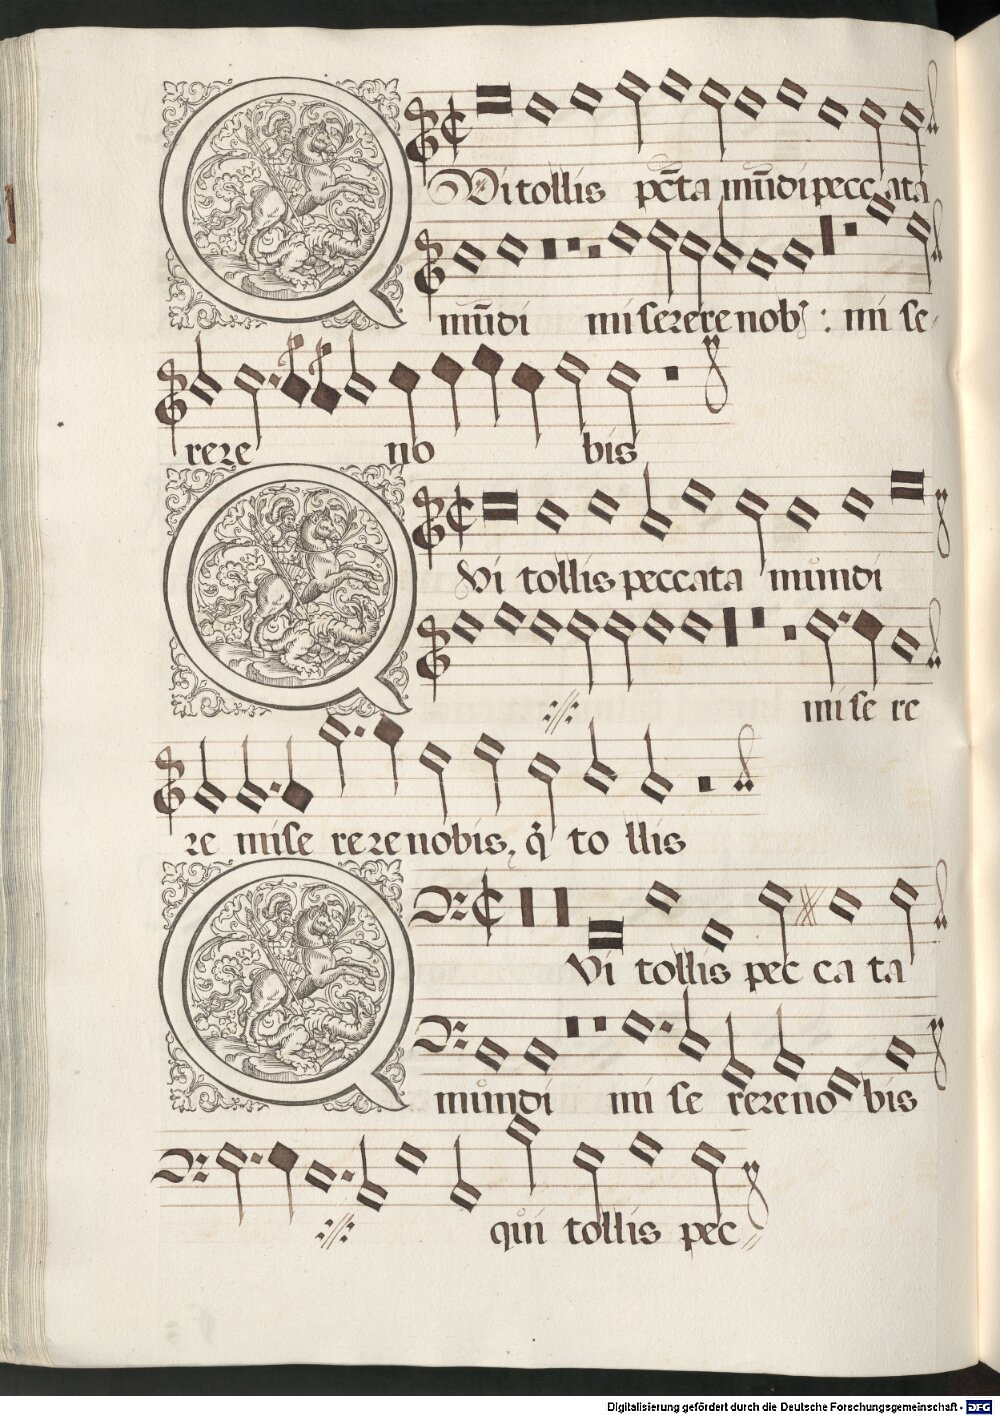 QVi tollis pc̄ta mūdi peccata
mūdi miserere nob : mi se-
rere no bis
QVi tollis peccata mundi
mise re
re mise rere nobis, q̊ to llis
QVi tollis pec ca ta
mundi mi se rereno bis
qui tollis pec
Digitalisierung gefördert durch die Deutsche Forschungsgemeinschaft - DFG